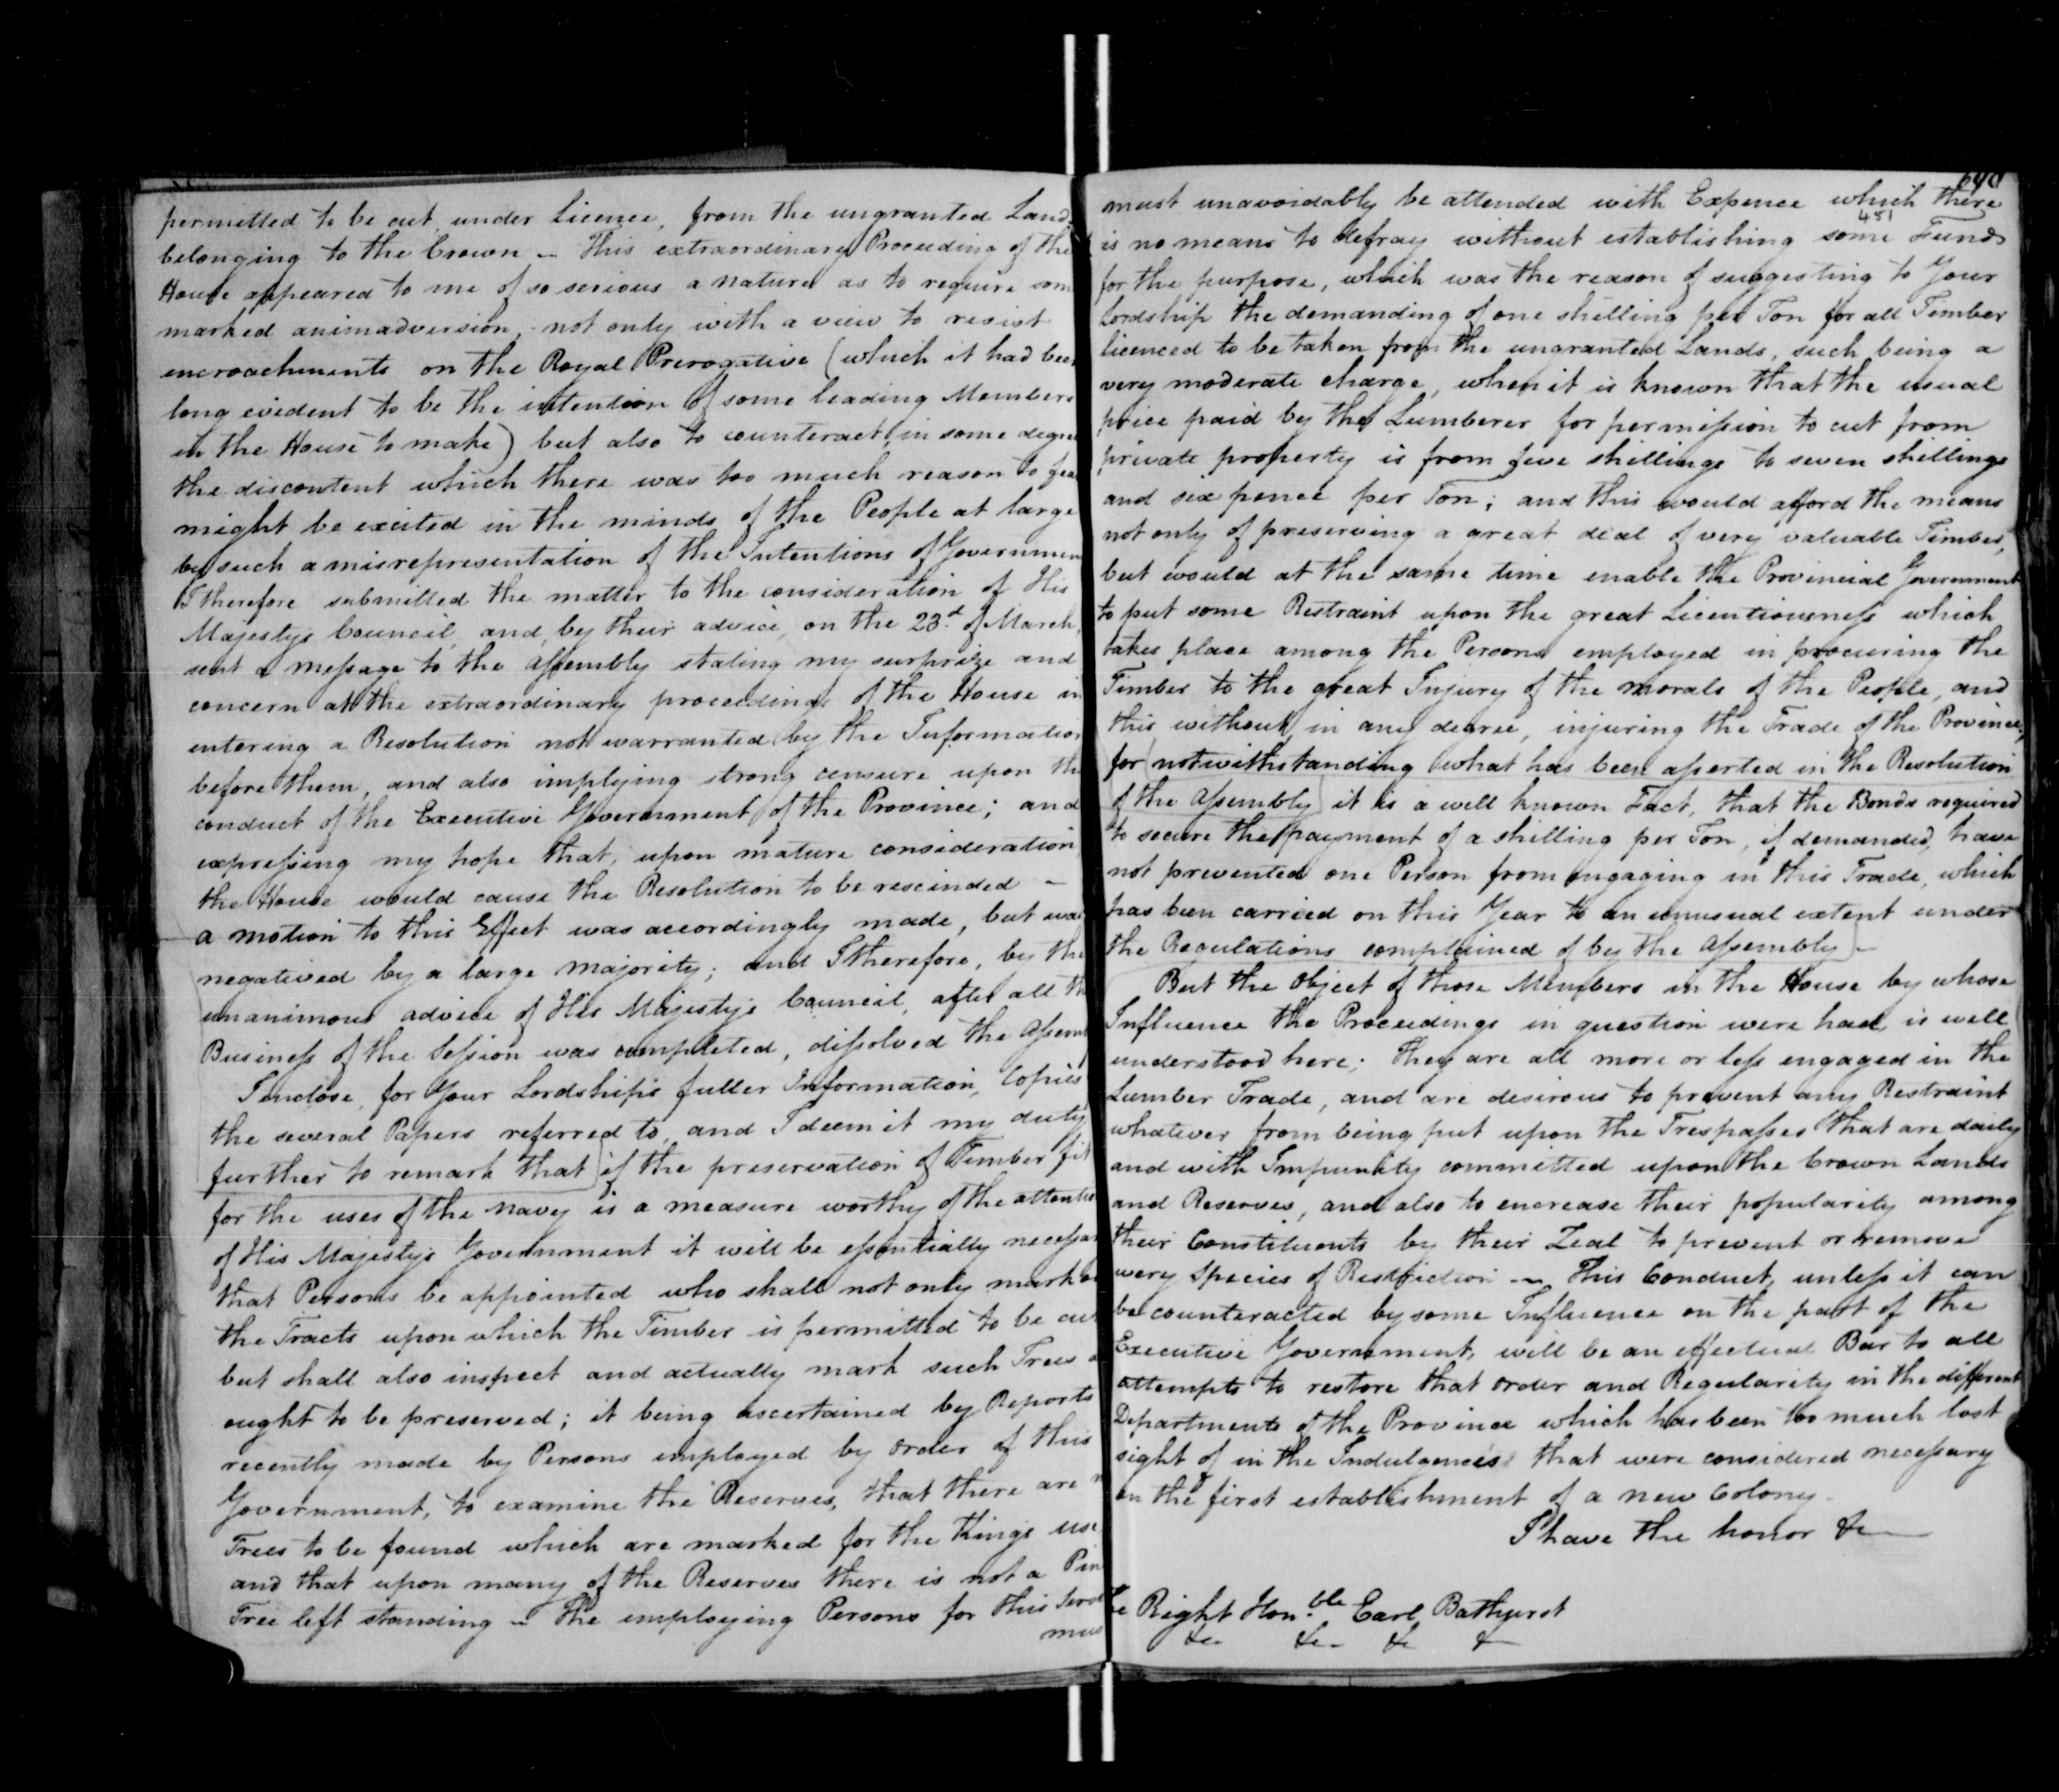 permitted to be cut, under Licence, from the ungranted Lands
belonging to the Crown – This extraordinary Proceeding of the
House appeared to me of so serious a nature as to require som
marked animadversion, not only with a view to resist
encroachments on the Royal Prerogative (which it had been
long evident to be the intention of some leading Members
in the House to make) but also to counteract, in some degree
the discontent which there was too much reason to fear
might be excited in the minds of the People at large
by such a misrepresentation of the Intentions of Governmen
I therefore submitted the matter to the consideration of His
Majestys Council, and, by their advice, on the 23d. of March,
sent a message to the Assembly stating my surprize and
concern at the extraordinary proceedings of the House in
entering a Resolution not warranted by the Information
before them, and also implying strong censure upon the
conduct of the Executive Government of the Province; and
expressing my hope that, upon mature consideration
the House would cause the Resolution to be rescinded –
a motion to this Effect was accordingly made, but was
negatived by a large majority; and I therefore, by the
unanimous advice of His Majestys Council, after all th
Business of the Session was completed, dissolved the Assem
I enclose, for Your Lordships fuller Information, Copies
the several Papers referred to, and I deem it my duty
further to remark that if the preservation of Timber fit
for the uses of the navy is a measure worthy of the attentio
of His Majestys Government it will be essentially necessar
that Persons be appointed who shall not only mark o
the Tracts upon which the Timber is permitted to be cut
but shall also inspect and actually mark such Trees a
ought to be preserved; it being ascertained by Reports
recently made by Persons employed by order of this
Government, to examine the Reserves, that there are n
Trees to be found which are marked for the Kings use
and that upon many of the Reserves there is not a Pin
Tree left standing – The employing Persons for this Serv
mus
640
must unavoidably be attended with Expence which there
451
is no means to defray without establishing some Fund
for the purpose, which was the reason of suggesting to Your
Lordship the demanding of one shilling per Ton for all Timber
licenced to be taken from the ungranted Lands, such being a
very moderate charge, when it is known that the usual
price paid by the Lumberer for permission to cut from
private property is from five shillings to seven shillings
and six pence per Ton; and this would afford the means
not only of preserving a great deal of very valuable Timber,
but would at the same time enable the Provincial Government
to put some Restraint upon the great Licentiousness which
takes place among the Persons employed in procuring the
Timber to the great Injury of the morals of the People, and
this without, in any degree, injuring the Trade of the Province;
for notwithstanding what has been asserted in the Resolution
of the Assembly it is a well known Fact, that the Bonds required
to secure the payment of a shilling per Ton, if demanded, have
not prevented one Person from engaging in this Trade, which
has been carried on this Year to an unusual extent under
the Regulations complained of by the Assembly –
But the Object of those Members in the House by whose
Influence the Proceedings in question were had is well
understood here; They are all more or less engaged in the
Lumber Trade, and are desirous to prevent any Restraint
whatever from being put upon the Trespasses that are daily
and with Impunity committed upon the Crown Lands
and Reserves, and also to encrease their popularity among
their Constituents by their Zeal to prevent or remove
every Species of Restriction – This Conduct, unless it can
be counteracted by some Influence on the part of the
Executive Government, will be an effectual Bar to all
attempts to restore that order and Regularity in the different
Departments of the Province which has been too much lost
sight of in the Indulgences that were considered necessary
on the first establishment of a new Colony –
I have the honor &c
The Right Honble. Earl Bathurst
&c &c &c &c